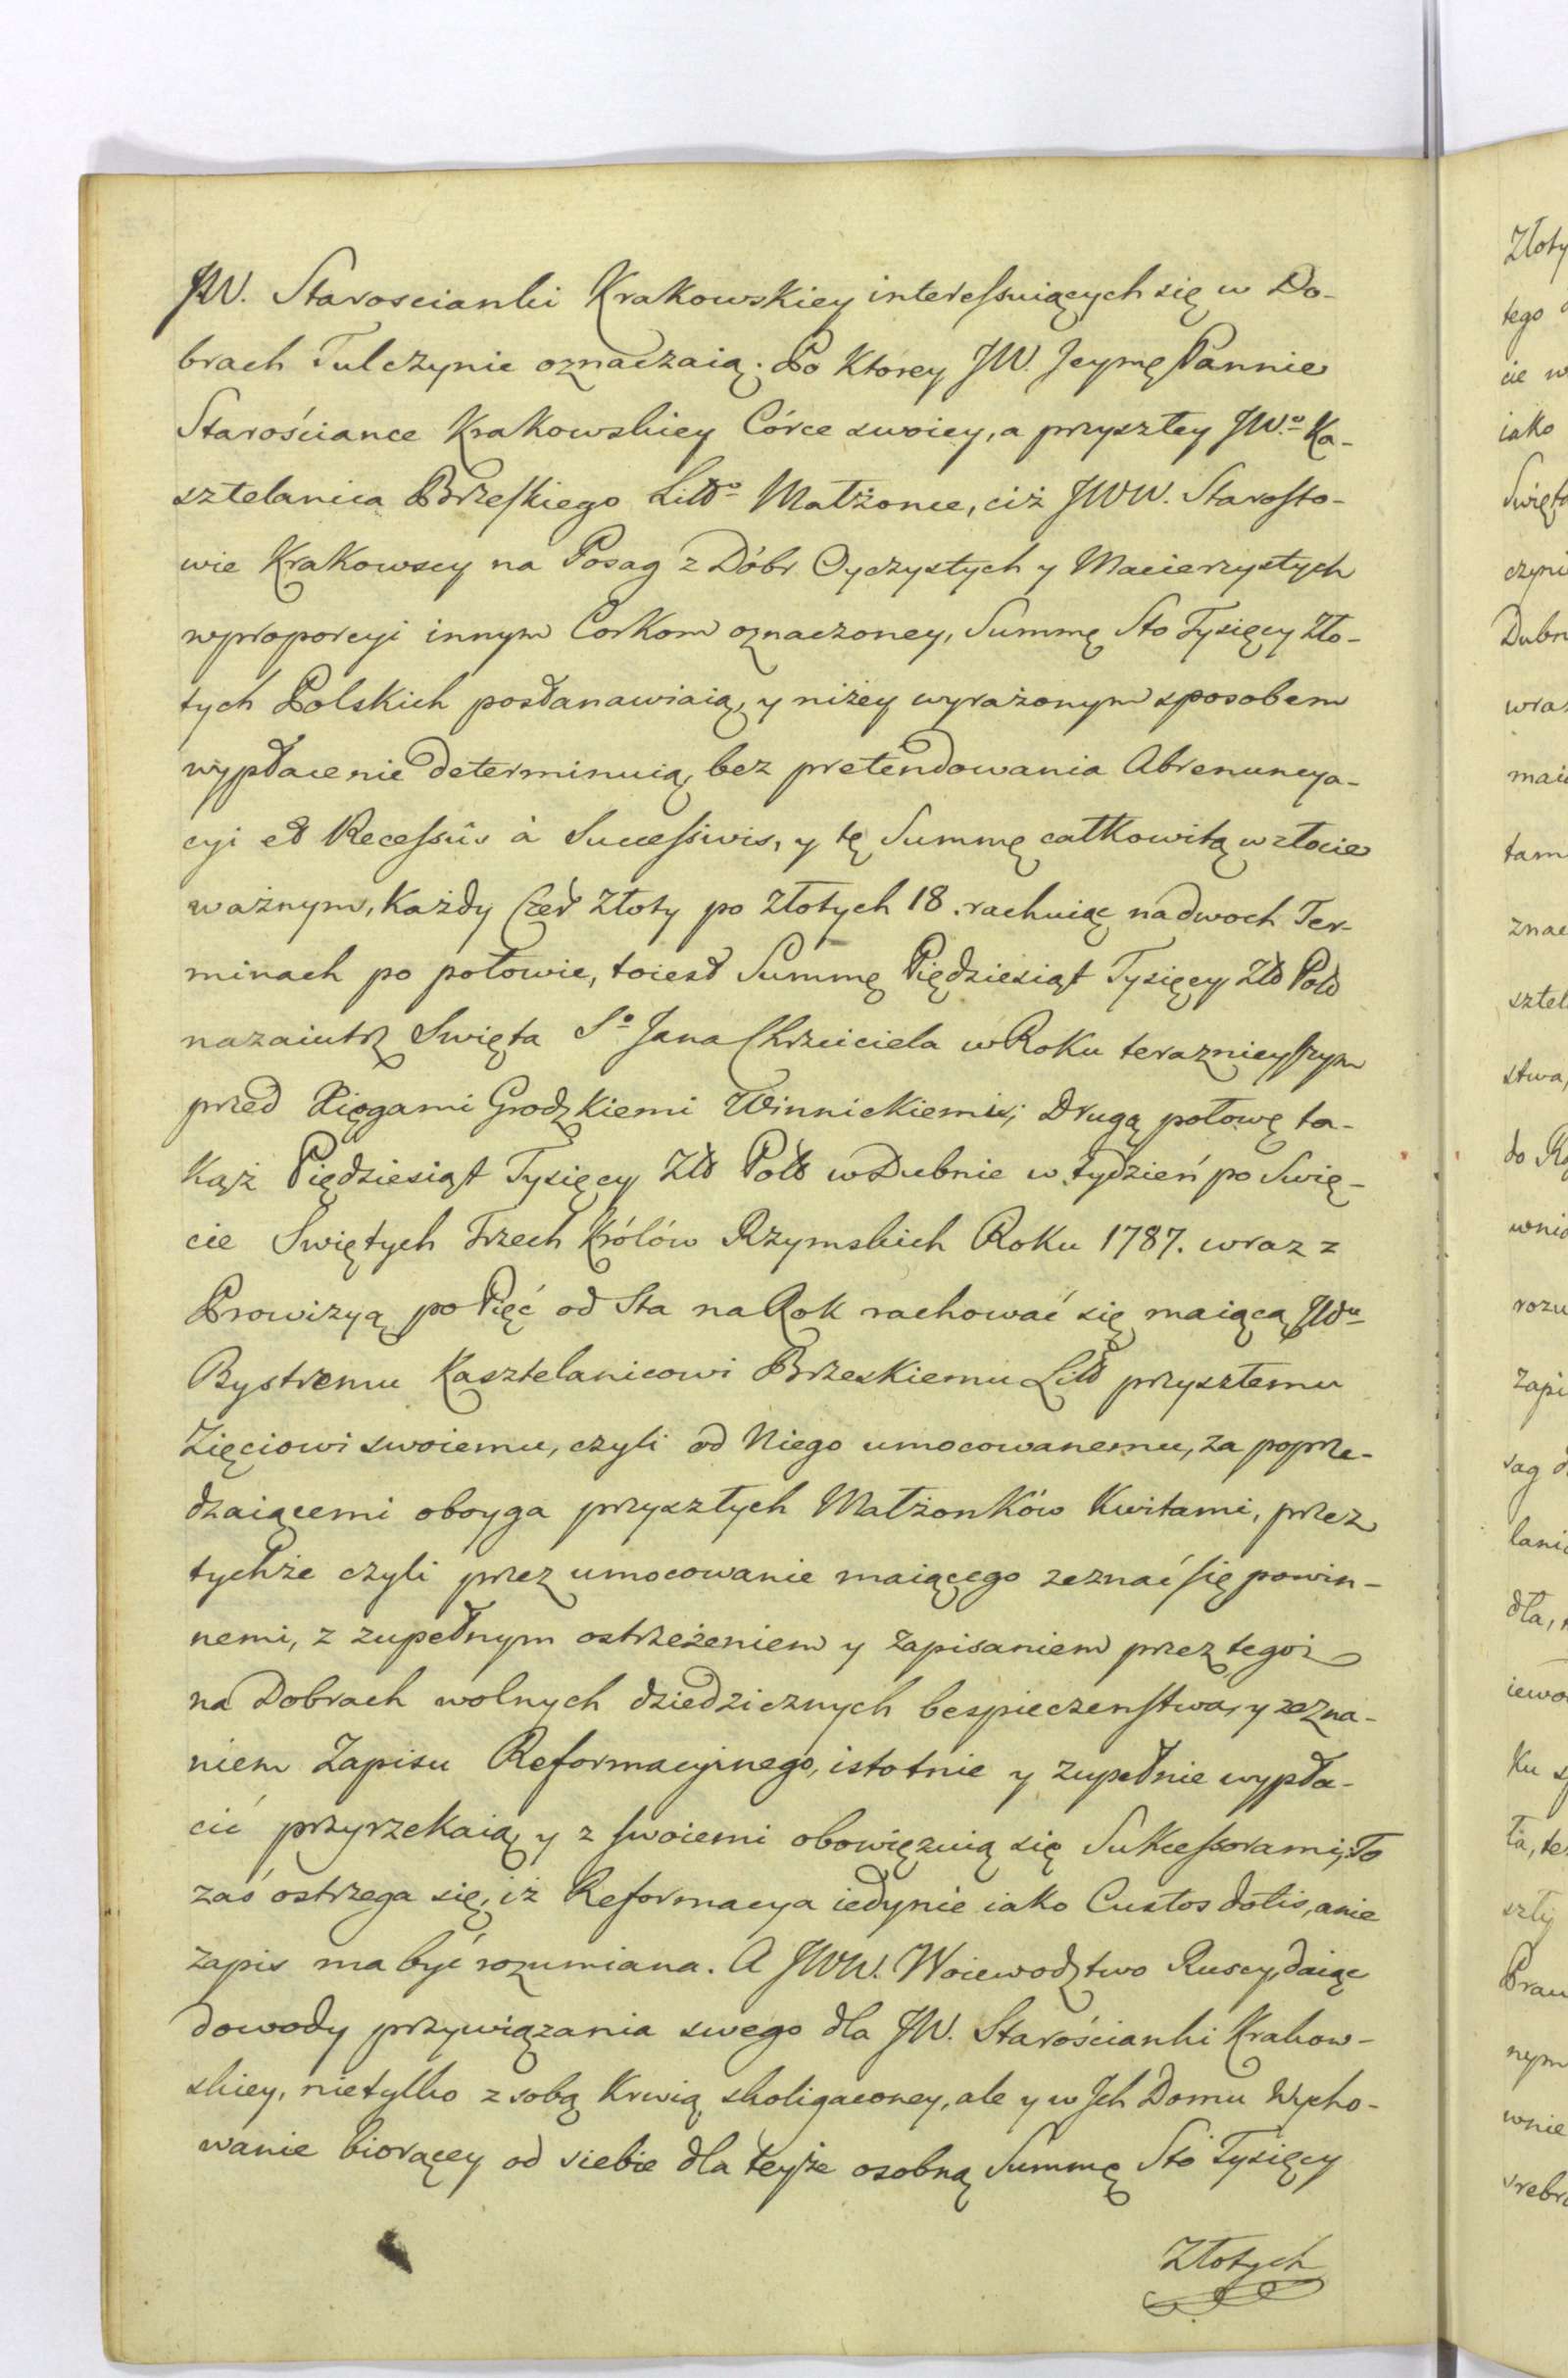 JW. Staroscianki Krakowskiey interessuiących się w Do-
brach Tulczynie oznaczaią. Po Ktorey JW. Jeymę Pannie
Starościance Krakowskiey Córce swoiey, a przyszłey JW.º Ka-
sztelanica Brzeskiego Littº Małżonce, ciż JWW. Starosto-
wie Krakowscy na Posag z Dóbr Oyczystych y Macierzystych
wproporcyi innym Corkom oznaczoney, Summę Sto Tysięcy Zło-
tych Polskich postanawiaią, y niżey wyrażonym sposobem
wypłacenie determinuią, bez pretendowania Abrenuncya-
cyi et Recessûs à Successivis, y tę Summę całkowitą w złocie
ważnym, Każdy Czer Złoty po Złotych 18. rachuiąc na dwoch Ter-
minach po połowie, toiest Summę Piędziesiąt Tysięcy Złt Pols
nazaiutrz Swięta Sº Jana Chrzciciela w Roku teraznieyszym
przed Xięgami Grodzkiemi Winnickiemi; Drugą połowę ta-
Kąż Piędziesiąt Tysięcy Złt Polt w Dubnie w tydzień po Swię-
cie Swiętych Trzech Królów Rzymskich Roku 1787. wraz z
Prowizyą po Pięć od Sta na Rok rachować się maiącą JWu
Bystremu Kasztelanicowi Brzeskiemu Litt przyszłemu
Zięciowi swoiemu, czyli od Niego umocowanemu, za poprze-
dzaiącemi oboyga przyszłych Małżonków Kwitami, przez
tychże czyli przez umocowanie maiącego zeznać się powin-
nemi, z zupełnym ostrzeżeniem y zapisaniem przez tegoż
na Dobrach wolnych dziedzicznych bespieczenstwa, y zezna-
niem Zapisu Reformacyinego, istotnie y zupełnie wypła-
cić przyrzekaią y z swoiemi obowięzuią się Sukcessorami; To
zaś ostrzega się, iż Reformacya iedynie iako Custos dotis, a nie
zapis ma być rozumiana. A JWW. Woiewodztwo Ruscy, daiąc
dowody przywiązania swego dla JW. Starościanki Krakow-
skiey, nietylko z sobą Krwią skoligaconey, ale y w Jch Domu Wycho-
wanie biorącey od siebie dla teyże osobną Summę Sto Tysięcy
Złotych
Złoty
tego
cie w
iako
Swięto
czyni
Dubn
wraz
maią
tam
znac
sztel
stwa,
do Ro
wnie
rozu
zapi
sag d
lani
dła,
iewo
Ku s
ła, te
szły
Praw
nym
wnie
srebr